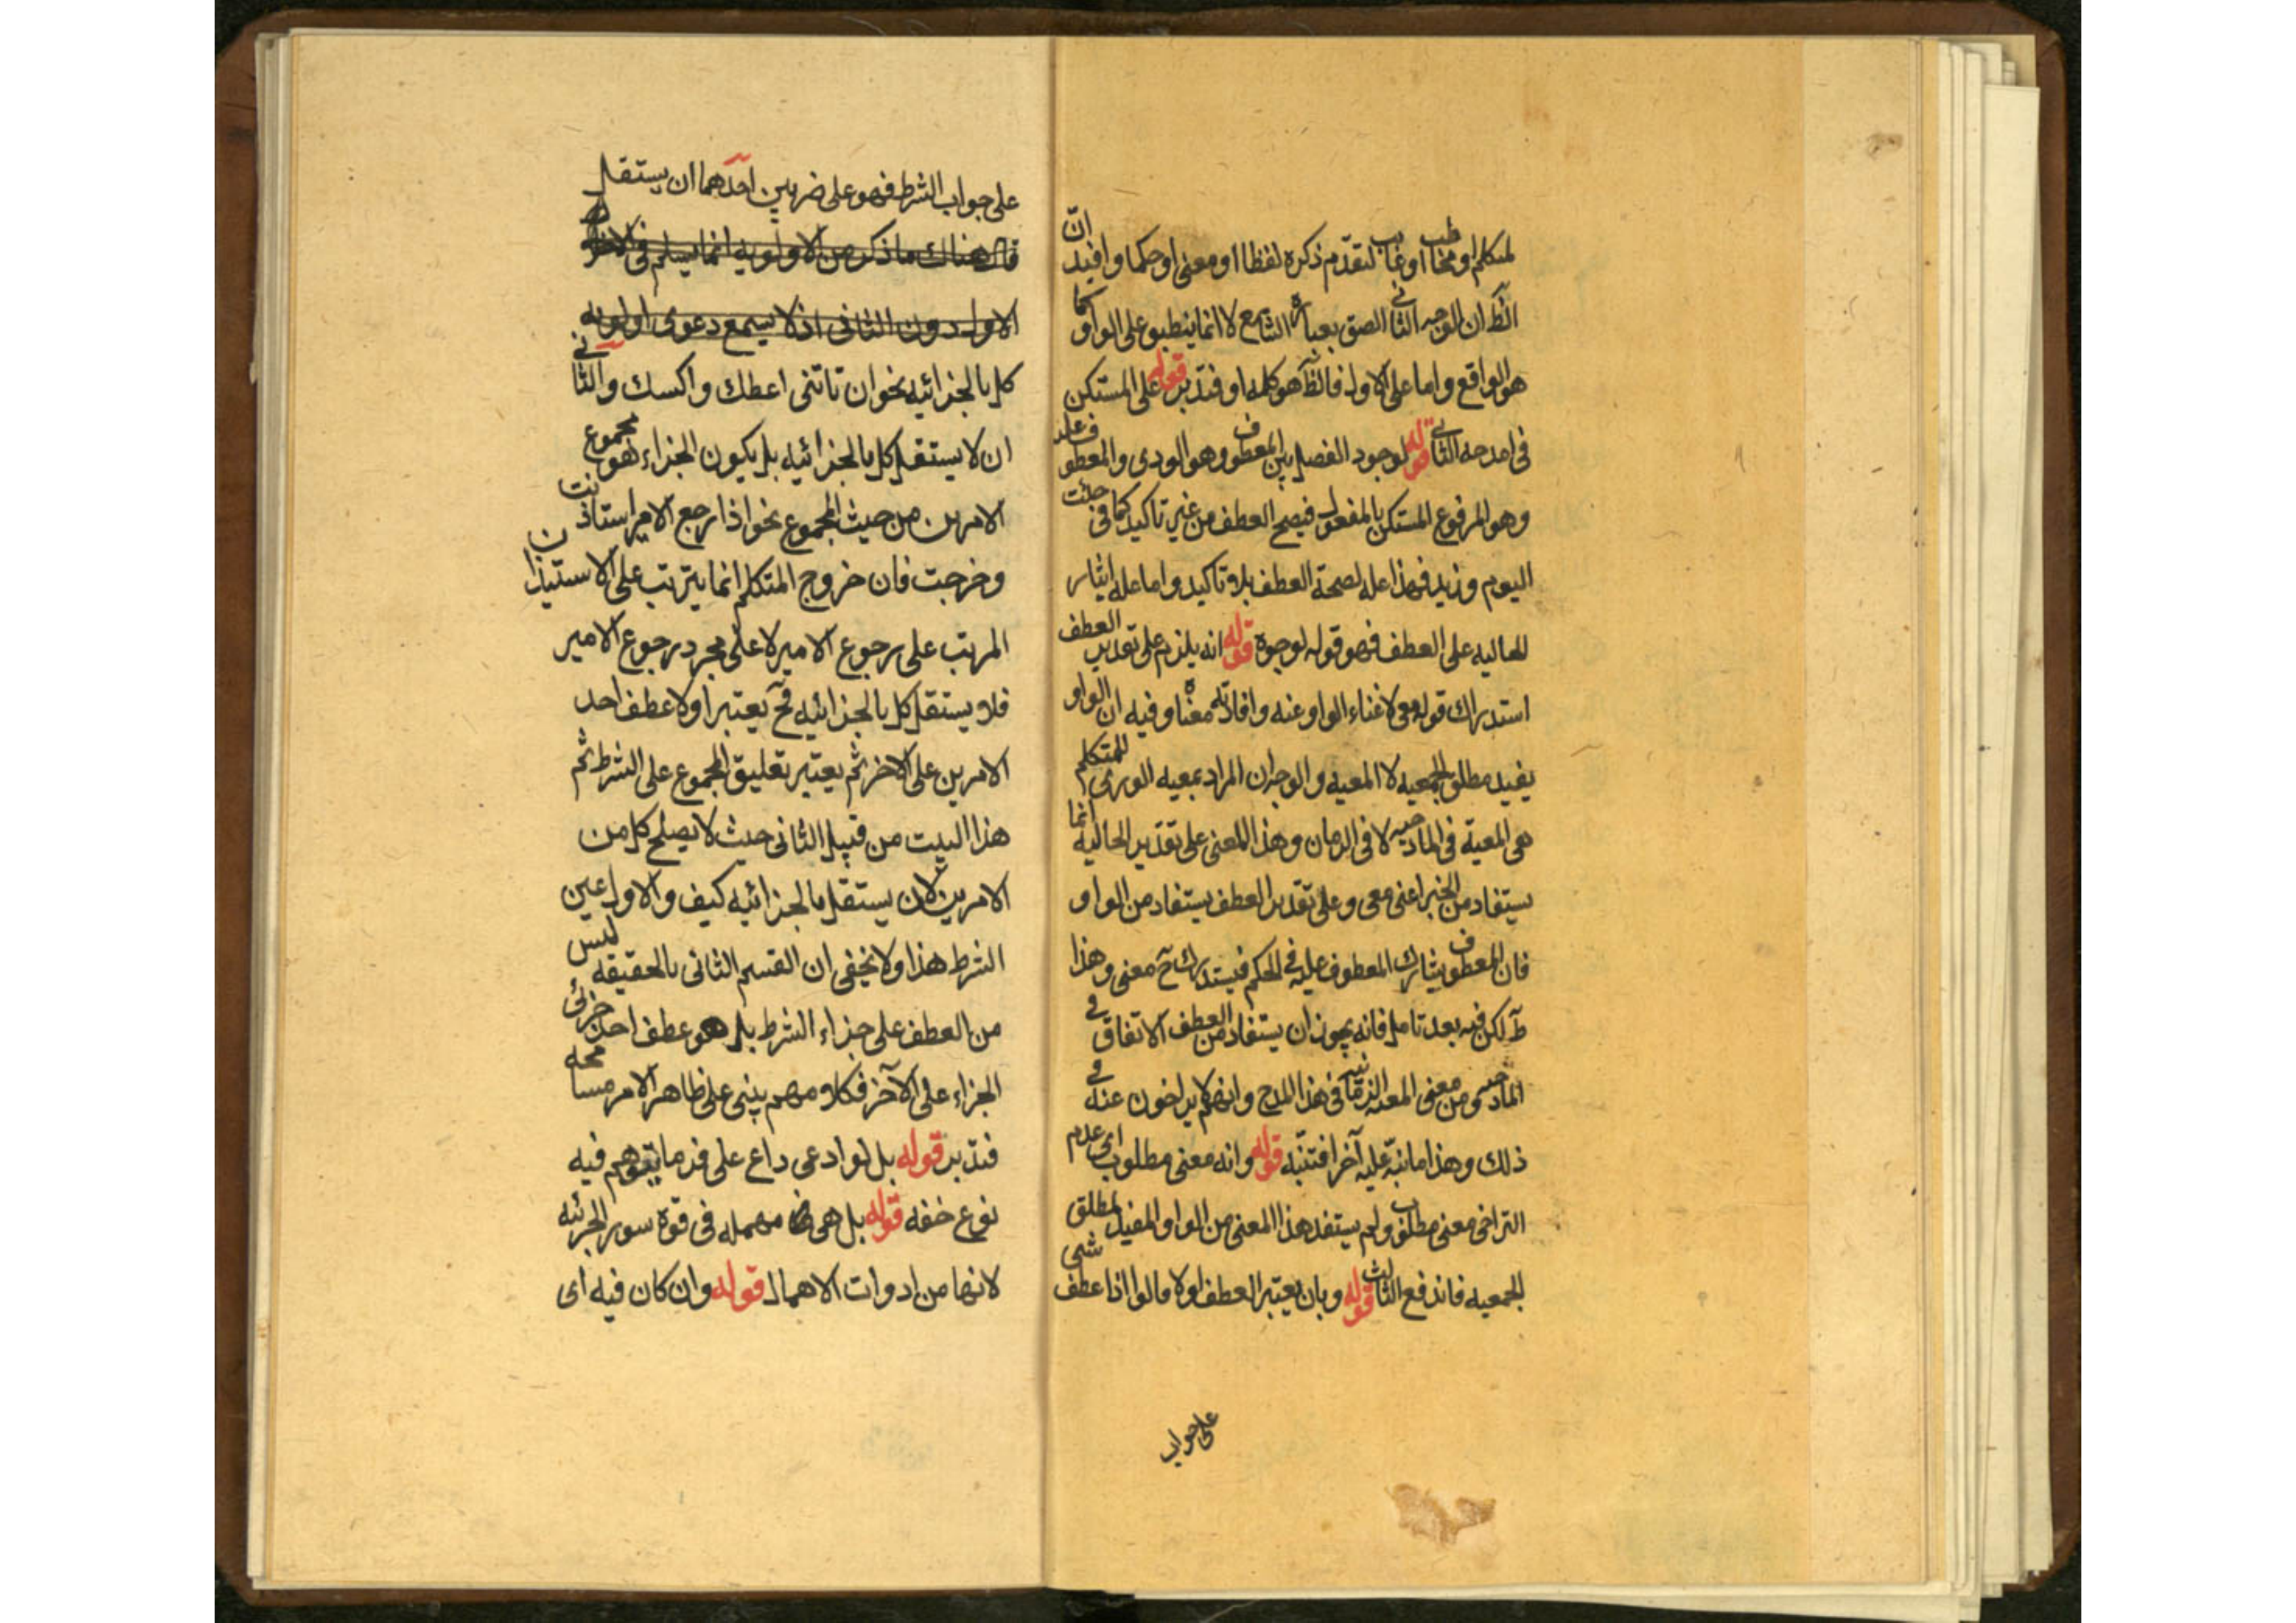 لمتكلم او مخاطب او غايب لتقدم ذكره لفظا او معنى او حكما وافيد انّ
الظ ان الوجه الثانى الصق بعبارة الشا مع لا انما ينطبق على الواو كما
هو الواقع واما على الاول فالظ هو كلمه او فتدبر قوله على المستكن
فى امدحه الثانى قوله لوجود الفصل بين المعطوف وهو الودى والمعطوف عليه
وهو المرفوع المستكن بالمفعول فيصح العطف من غير تاكيد كما فى جئت
اليوم وزيد فهذا عله لصحة العطف بلا تاكيد واما عله ايثار
الحاليه على العطف فهو قوله لوجوه قوله انه يلزم على تقدير العطف
استدراك قوله معى لاغناء الواو عنه وافادته معناه وفيه ان الواو
يفيد مطلق الجمعيه لا المعيه والوجه ان المراد بمعيه الورى للمتكلم
هى المعية فى المادحيه لا فى الزمان وهذا المعنى على تقدير الحاليه انما
يستفاد من الخبر اعنى معى وعلى تقدير العطف يستفاد من الواو
فان المعطوف يشارك المعطوف عليه فى الحكم فيستدرك ح معنى وهذا
ظ لكن فيه بعد تامل فانه يجوز ان يستفاد من العطف الاتفاق فى
المادحيه ومن معنى المعيه الزمانيه فى هذا المدح وانهم لا يتراخون عنه فى
ذلك وهذا ما نبّه عليه آخرا فتنبّه قوله وانه معنى مطلوب اى عدم
التراخى معنى مطلوب ولم يستفد هذا المعنى من الواو المفيد لمطلق
الجمعيه فاندفع الثالث قوله وبان يعتبر العطف اولا قالوا اذا عطف شى
على جواب
على جواب الشرط فهو على ضربين احدهما ان يستقل
قال هناك ما ذكر من الاولويه انما يسلم فى
الاول دون الثانى اذ لا يسمع دعوى اولويه
كل بالجزائيه نحو ان تاتنى اعطك واكسك والثانى
ان لا يستقل كل بالجزائيه بل يكون الجزاء هو مجموع
الامرين من حيث المجموع نحو اذا رجع الامير استاذنت
وخرجت فان خروج المتكلم انما يترتب على الاستيذان
المرتب على رجوع الامير لا على مجرد رجوع الامير
فلا يستقل كل بالجزائيه فح يعتبر اولا عطف احد
الامرين على الاخر ثم يعتبر تعليق المجموع على الشرط ثم
هذا البيت من قبيل الثانى حيث لا يصلح كل من
الامرين لان يستقل بالجزائيه كيف والاول عين
الشرط هذا ولا يخفى ان القسم الثانى بالحقيقه ليس
من العطف على جزاء الشرط بل هو عطف احد جزئى
الجزاء على الآخر فكلامهم يبنى على ظاهر الامر مسامحه
فتدبر قوله بل لو ادعى داع على فرد ما يتوهم فيه
نوع خفه قوله بل هى مهمله فى قوة سور الجزئيه
لانها من ادوات الاهمال قوله وان كان فيه اى